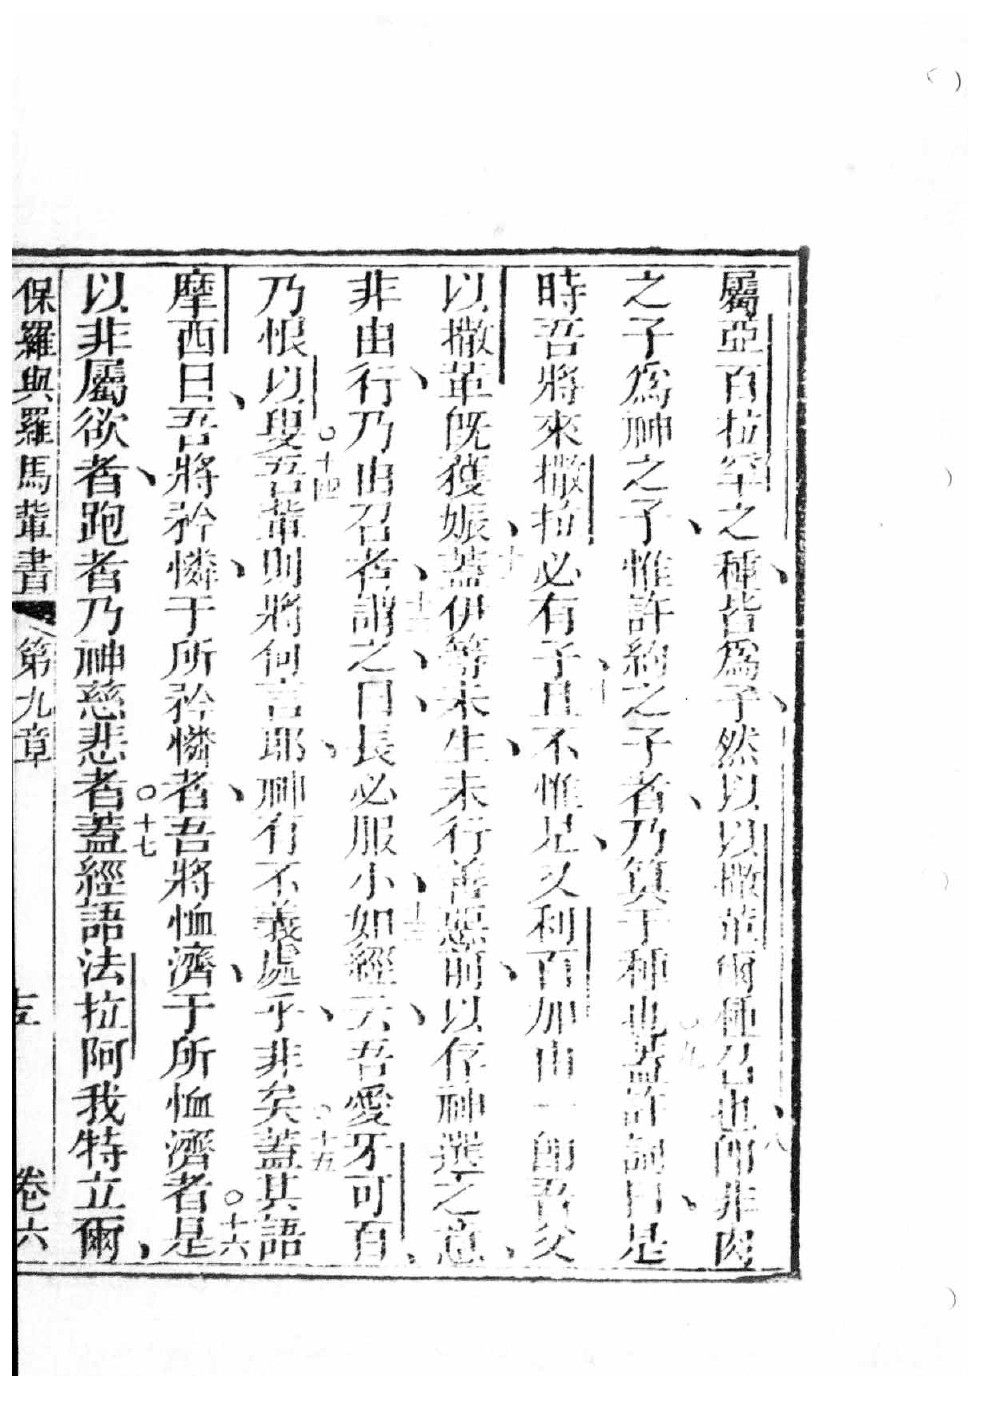 屬亞百拉罕之種皆爲子然以以撒革爾種召也八卽非肉
之子爲神之子惟許約之子者乃算于種也○九蓋許詞曰是
時吾將來撒拉必有子十且不惟是又利百加由一卽吾父
以撒革旣獲娠十一蓋伊等未生未行善惡前以存神選之意
非由行乃由召者十二謂之曰長必服小十三如經云吾愛牙可百
乃恨以叟○十四吾輩則將何言耶神有不義處乎非矣○十五蓋其語
摩西曰吾將矜憐于所矜憐者吾將恤濟于所恤濟者○十六是
以非屬欲者跑者乃神慈悲者○十七蓋經語法拉阿我特立爾
保羅與羅馬輩書 第九章 卷六